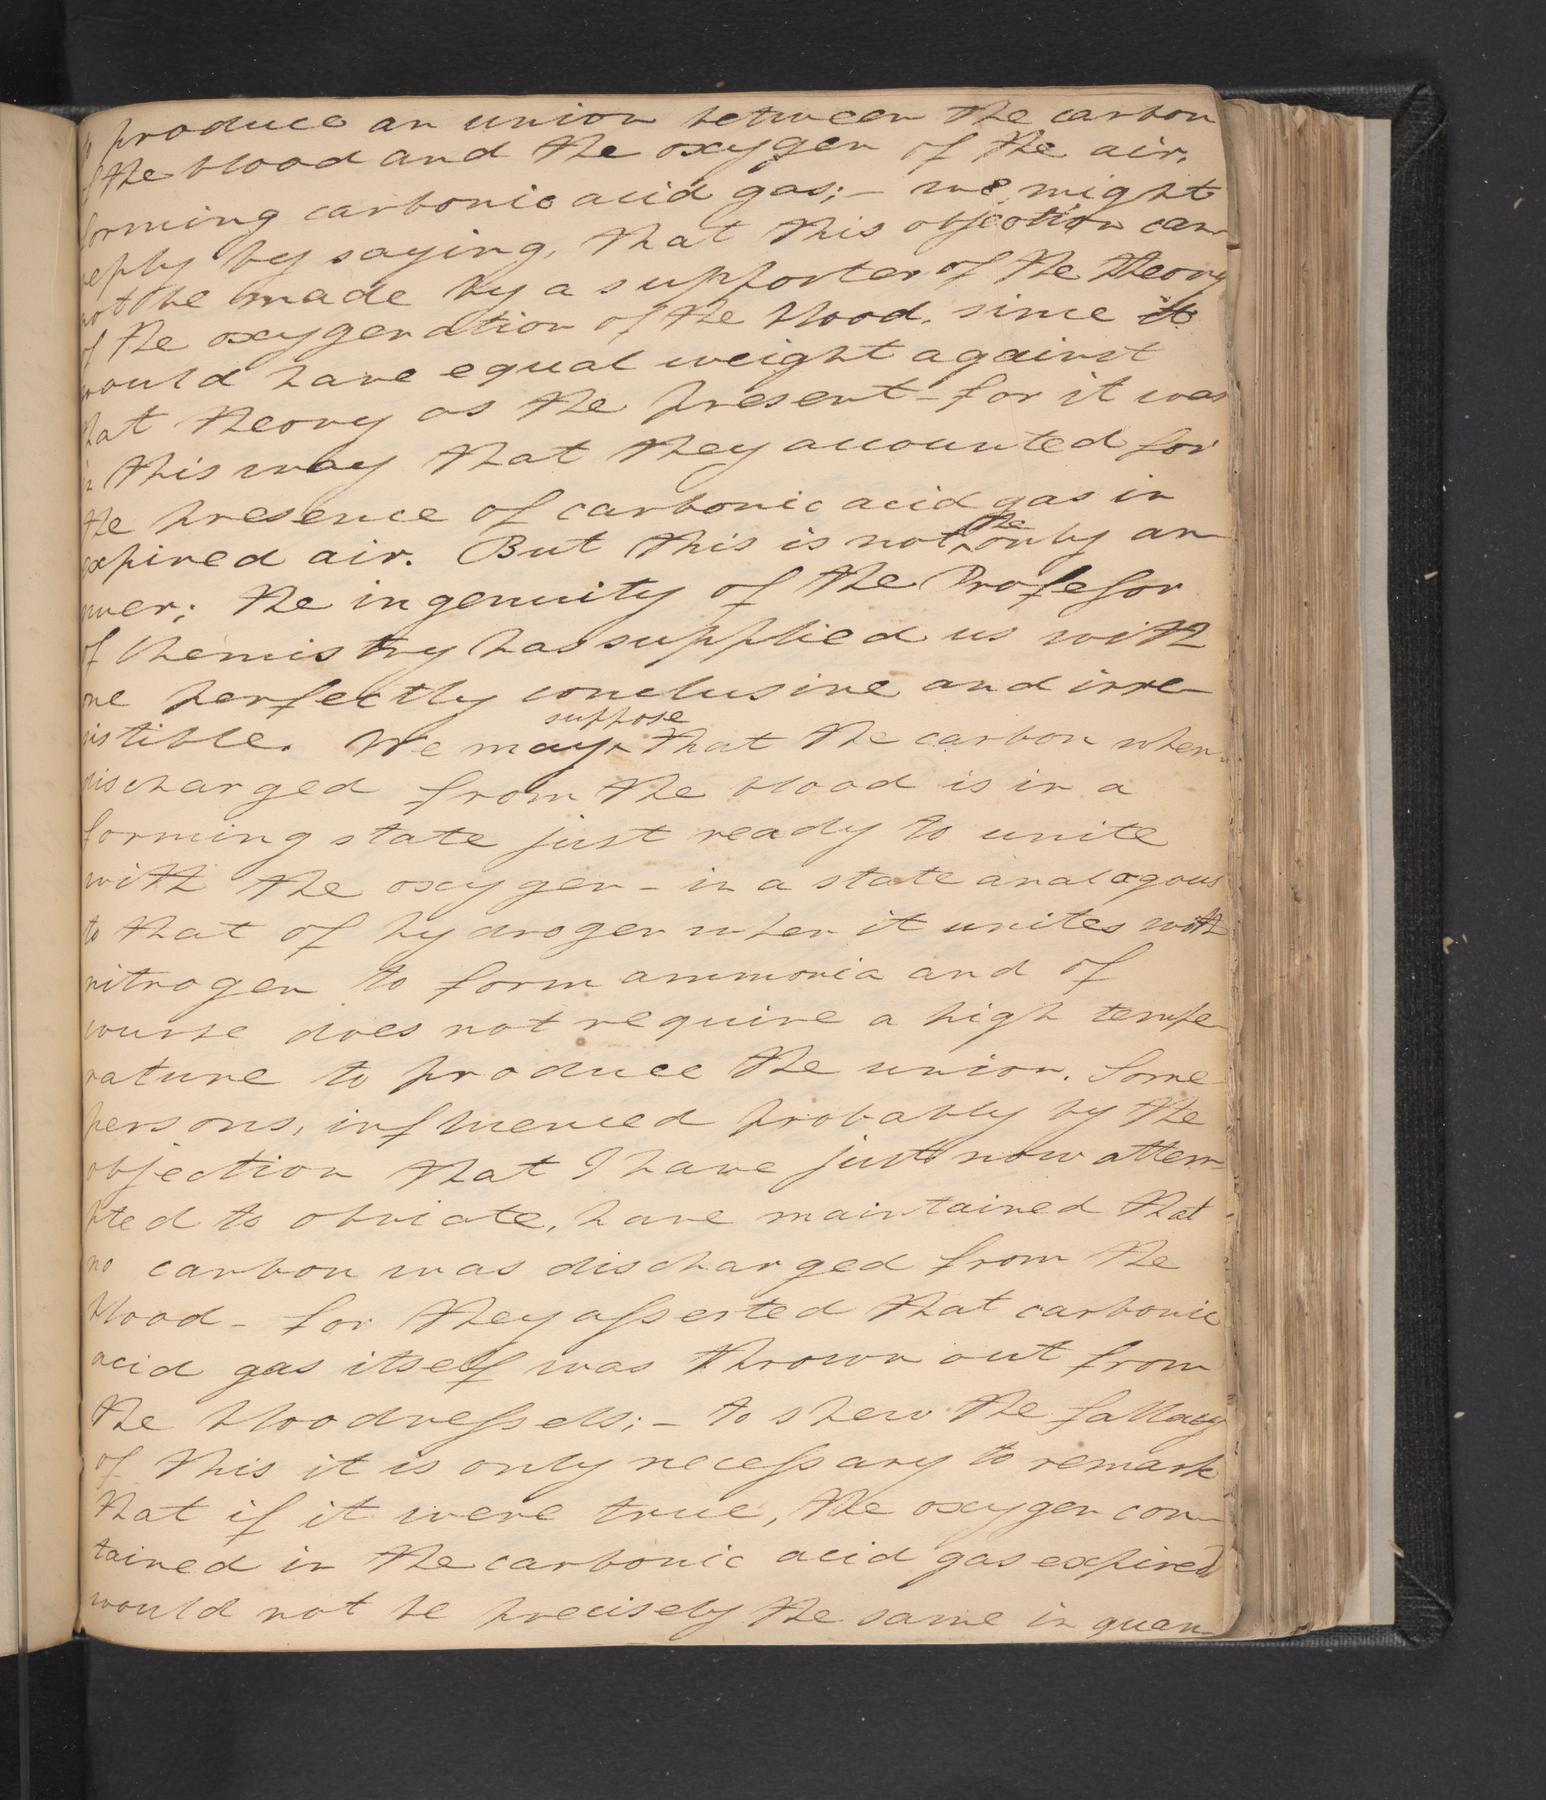 to produce an union between the carbon
of the blood and the oxygen of the air,
forming carbonic acid gas;– we might
reply by saying, that this objection can-
not be made by a supporter of the theory
of the oxygenation of the blood, since it
would have equal weight against
that theory as the present – for it was
in this way that they accounted for
the presence of carbonic acid gas in
expired air. But this is not ^the only an-
swer; the ingenuity of the Profeſsor
of Chemistry has supplied us with
one perfectly conclusive and irre-
sistible. We may ^suppose that the carbon when
discharged from the blood is in a
forming state just ready to unite
with the oxygen – in a state analogous
to that of hydrogen when it unites with
nitrogen to form ammonia and of
course does not require a high tempe-
rature to produce the union. Some
persons, influenced probably by the
objection that I have just now attem-
pted to obviate, have maintained that
no carbon was discharged from the
blood – for they aſserted that carbonic
acid gas itself was thrown out from
the bloodveſsels;– to shew the fallacy
of this it is only neceſsary to remark
that if it were true, the oxygen con-
tained in the carbonic acid gas expired
would not be precisely the same in quan-